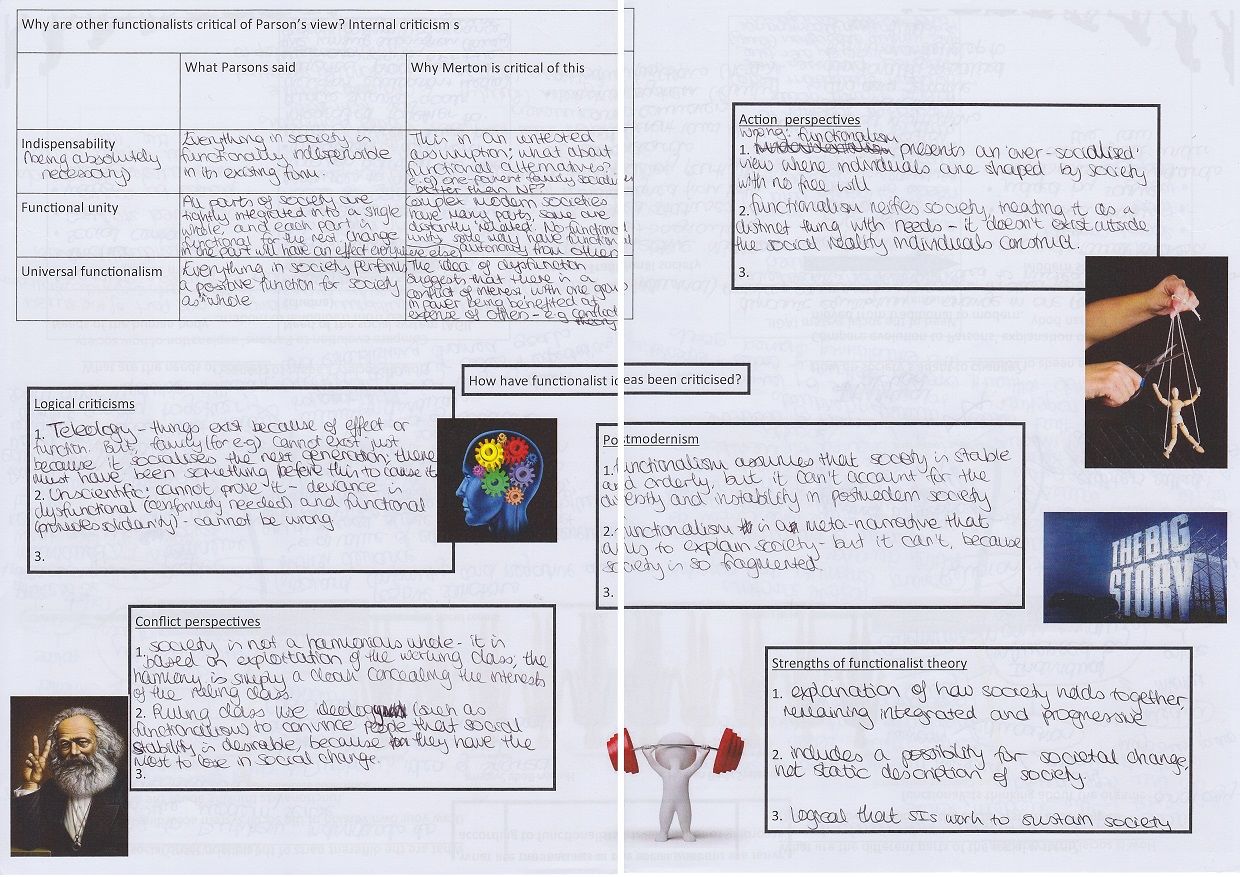 Why are other functionalists critical of Parson's view? Internal criticism s
What Parsons said
Why Merton is critical of this
Indispensability
(being absolutely
necessary)
Everything in society is
functionally indispensible
in its existing form.
This is an untested
assumption; what about
functional alternatives?
e.g. one-parent family socialises
better than NF?
Functional unity
All parts of society are
tightly integrated into a single
whole, and each part is
functional for the rest. Change
in one part will have an effect everywhere else)
Complex modern societies
have many parts, some are
distantly 'related'. No functional
unity, parts may have functional
autonomy from others
Universal functionalism
Everything in society performs
a positive function for society
as whole
The idea of dysfunction
suggests that there is a
conflict of interest, with one group
in power being benefited at
expense of others - e.g. conflict
theory
How have functionalist ideas been criticised?
Logical criticisms
1. Teleology - things exist because of effect or
function. But, family (for e.g) cannot exist just
because it socialises the next generation; there
must have been something before this to cause it
2. Unscientific: cannot prove it - deviance is
dysfunctional (conformity needed) and functional
(provides solidarity) - cannot be wrong
3.
Conflict perspectives
1. society is not a harmonious whole - it is
based on exploitation of the working class; the
harmony is simply a cloak concealing the interests
of the ruling class.
2. Ruling class use ideology (such as
functionalism) to convince people that social
stability is desirable, because they have the
most to lose in social change.
3.
Action perspectives
wrong: functionalism
1. presents an 'over-socialised'
view where individuals are shaped by society
with no free will
2. functionalism reifies society, treating it as a
distinct thing with needs - it doesn't exist outside
the social reality individuals construct.
3.
Postmodernism
1. functionalism assumes that society is stable
and orderly, but it can't account for the
diversity and instability in postmodern society
2. functionalism is a meta-narrative that
aims to explain society - but it can't, because
society is so fragmented.
3.
THE BIG
STORY
Strengths of functionalist theory
1. explanation of how society holds together,
remaining integrated and progressive
2. includes a possibility for societal change,
not static description of society.
3. Logical that SIs work to sustain society